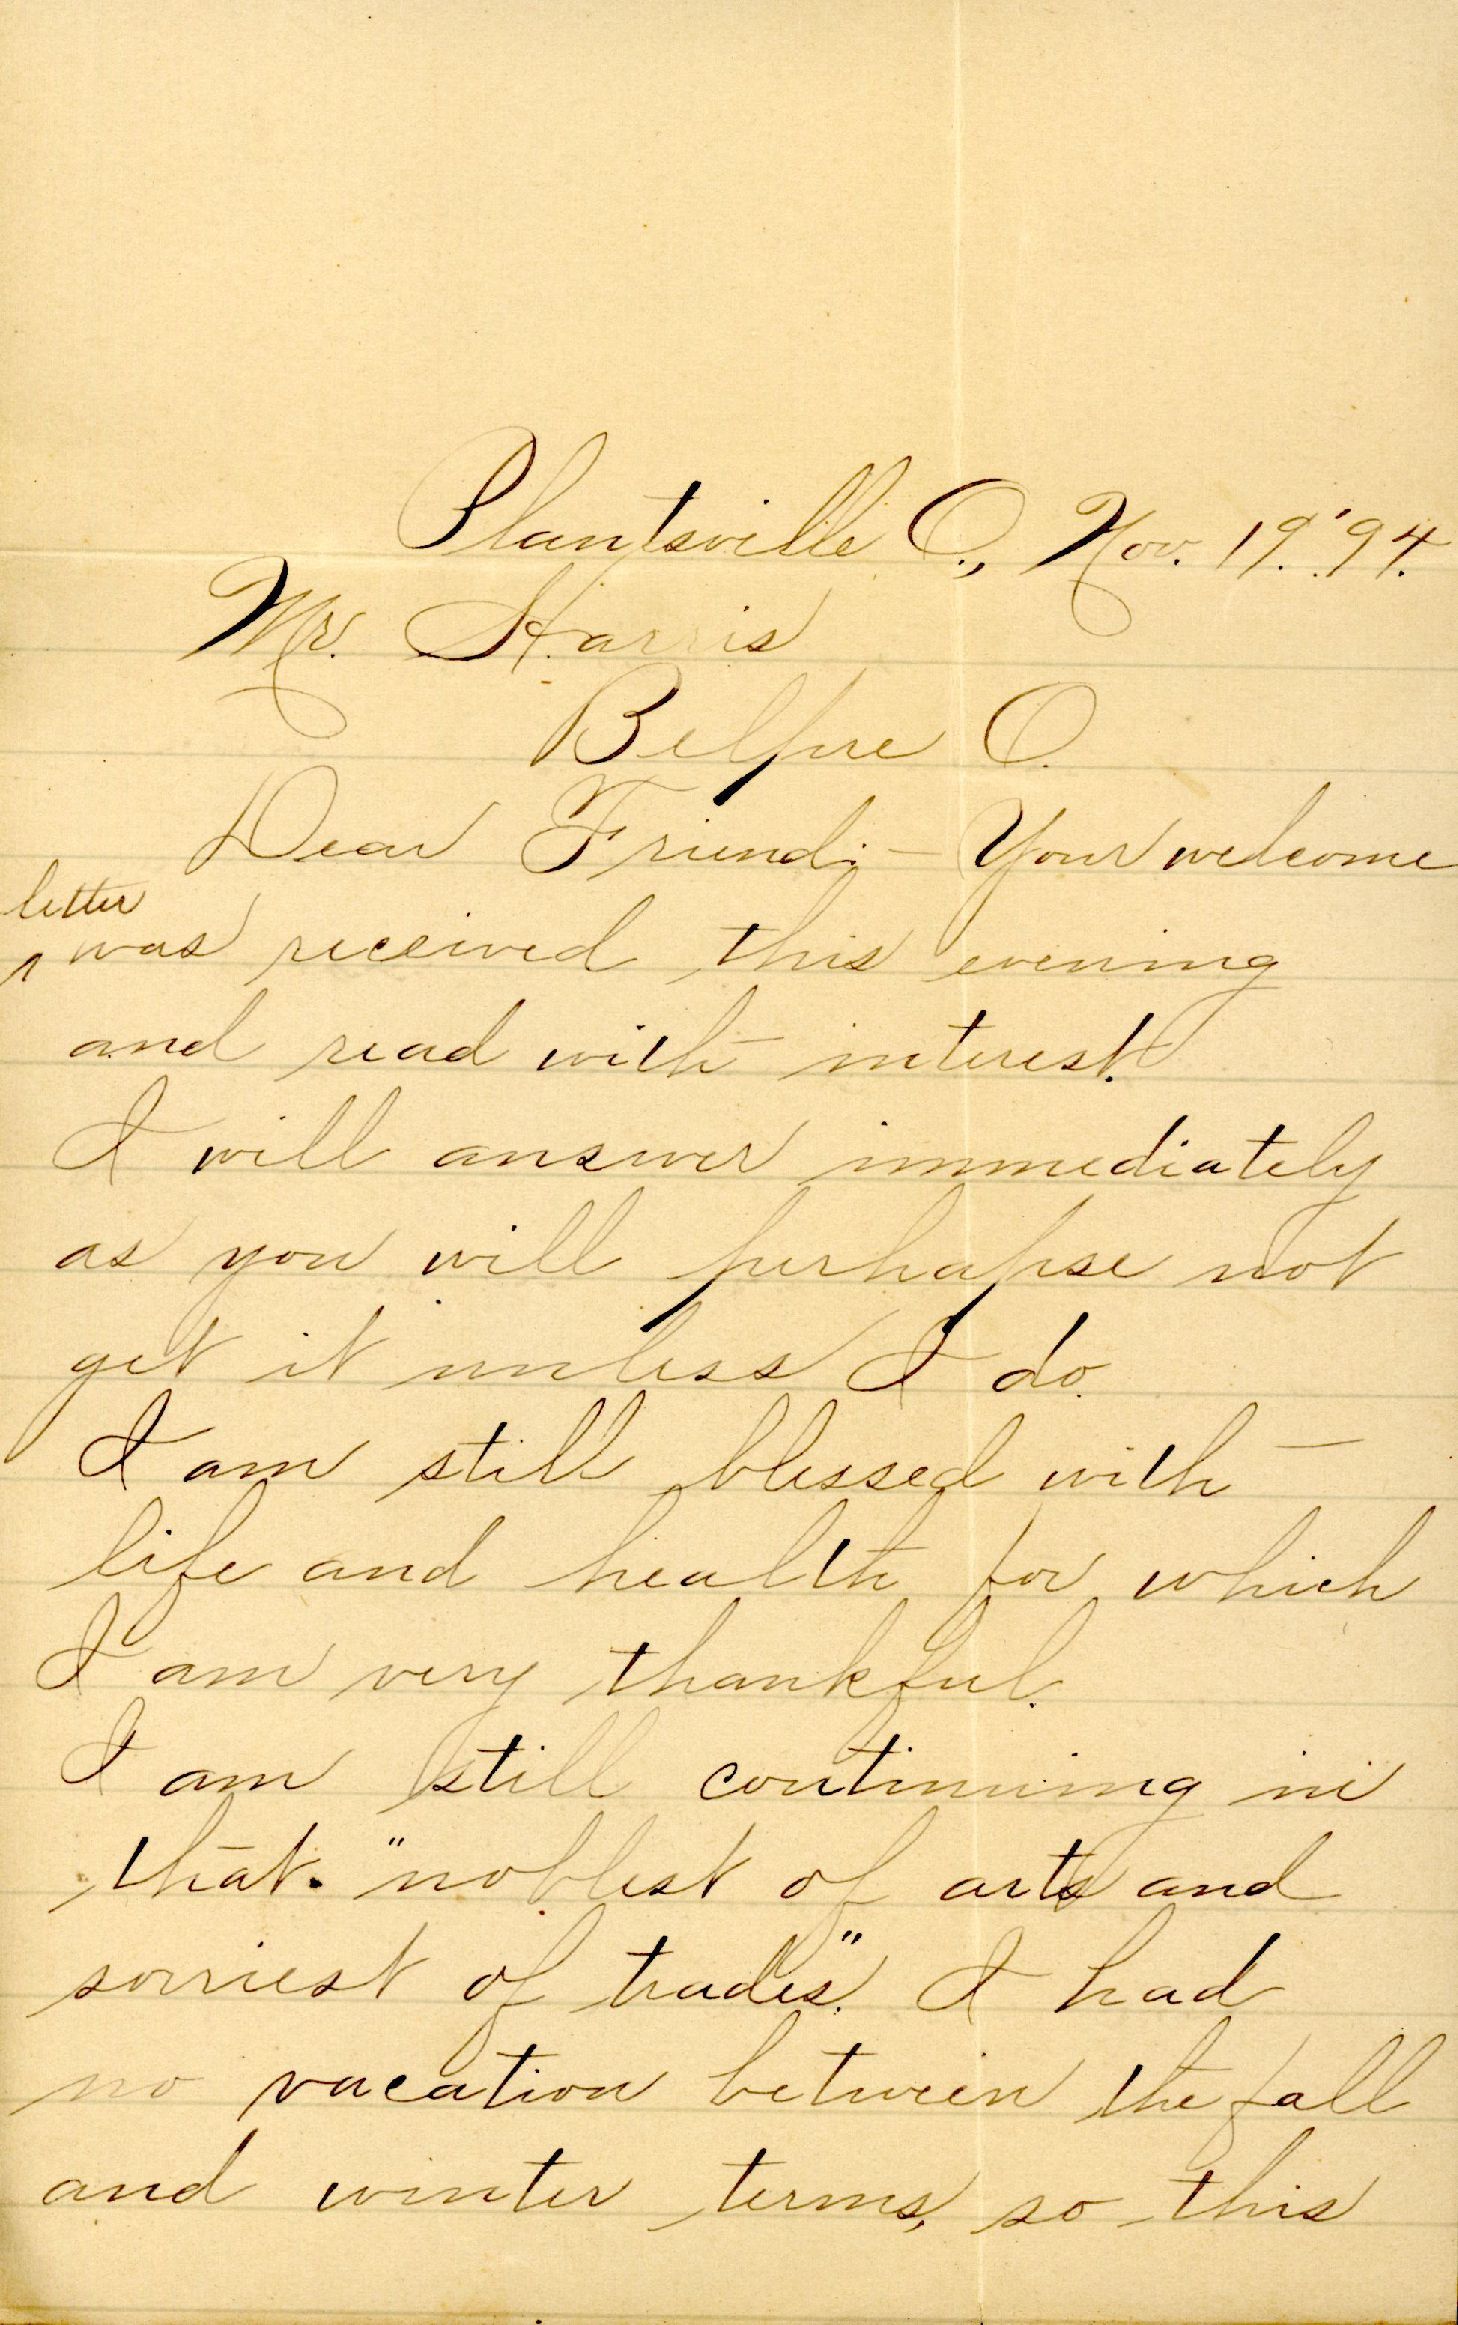 Plantsville O., Nov. 19. '94.
Mr. Harris
Belpre O.
Dear Friend:– Your welcome
letter
‸ was received this evening
and read with interest.
I will answer immediately
as you will perhapse not
get it unless I do.
I am still blessed with
life and health for which
I am very thankful.
I am still continuing in
that. "noblest of arts and
sorriest of trades". I had
no vacation between the fall
and winter terms, so this